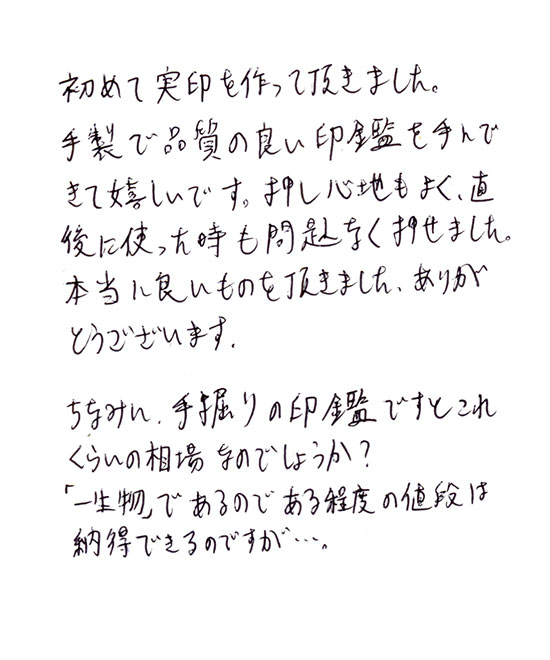 初めて実印を作って頂きました。
手製で品質の良い印鑑を手んで
きて嬉しいです。押し心地もよく、直
後に使った時も問題なく押せました。
本当に良いものを頂きました、ありが
とうございます。
ちなみに、手掘りの印鑑ですとこれ
くらいの相場なのでしょうか?
「一生物」であるのである程度の値段は
納得できるのですが…。